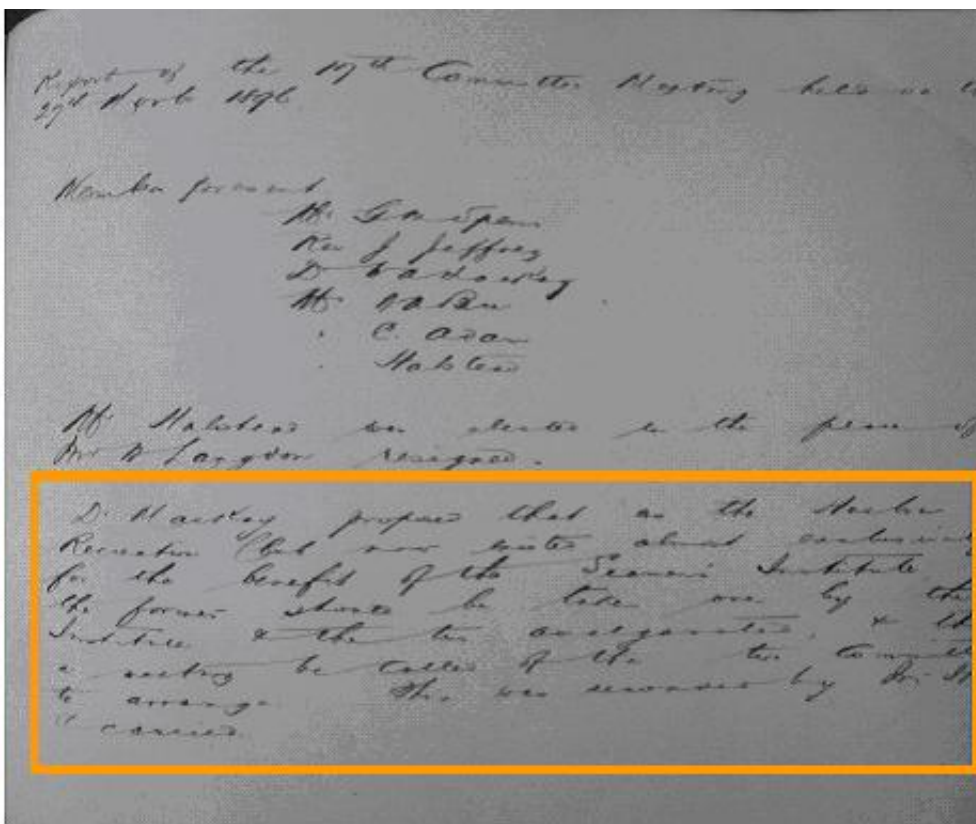 Report of the 17th Committee Meeting held on
1896
Members present
Mr G
Rev J Jeffrey
D Mackay
Mr
" C. Adam
" Halstead
Mr Halstead was elected in the place of
Mr Langdon resigned.
D. Mackay proposed that as the
Recreation Club now exists almost exclusively
for the benefit of the Seamen's Institute
the former should be taken over by the
Institute & the two amalgamated, &
a meeting be called of the two
to arrange. This was seconded by
& carried